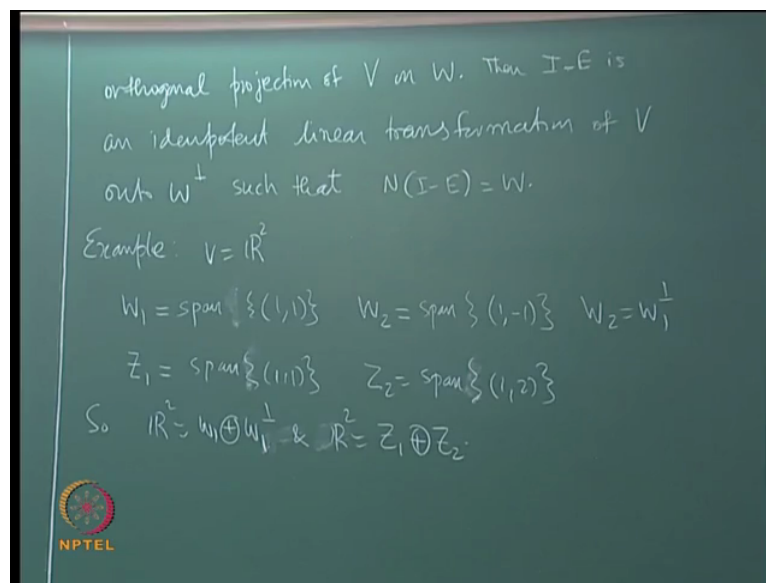 orthogonal projection of V on W. Then I-E is
an idempotent linear transformation of V
onto W^⊥ such that N(I-E) = W.
Example: V = ℝ^2
W_1 = span {(1,1)} W_2 = span {(1,-1)} W_2 = W_1^⊥
Z_1 = span{(1,1)} Z_2 = span{(1,2)}
So ℝ^2 = W_1 ⊕ W_1^⊥ & ℝ^2 = Z_1 ⊕ Z_2.
NPTEL